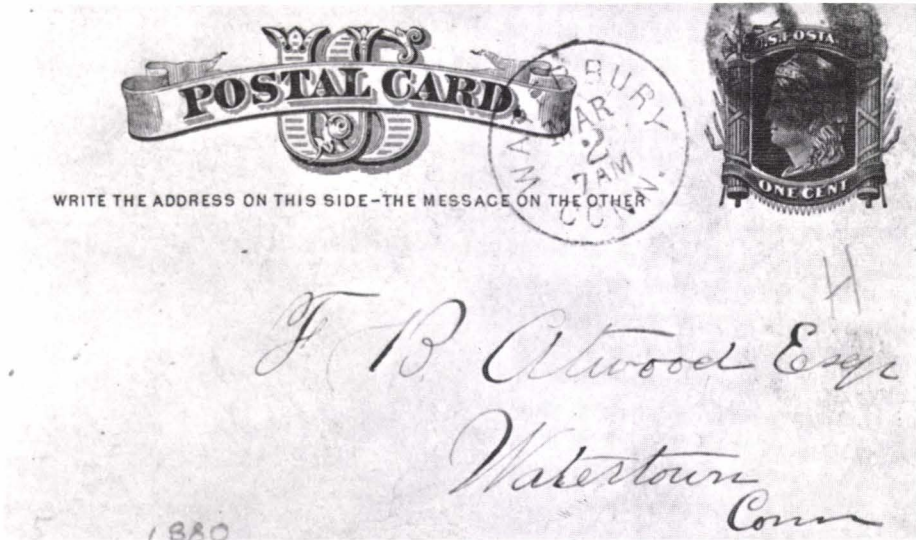 US
POSTAL CARD.
WRITE THE ADDRESS ON THIS SIDE-THE MESSAGE ON THE OTHER
MAR
2
7AM
CONN.
U.S. POSTA
ONE CENT
H
F B Atwood Esqr
Watertown
Conn
1880